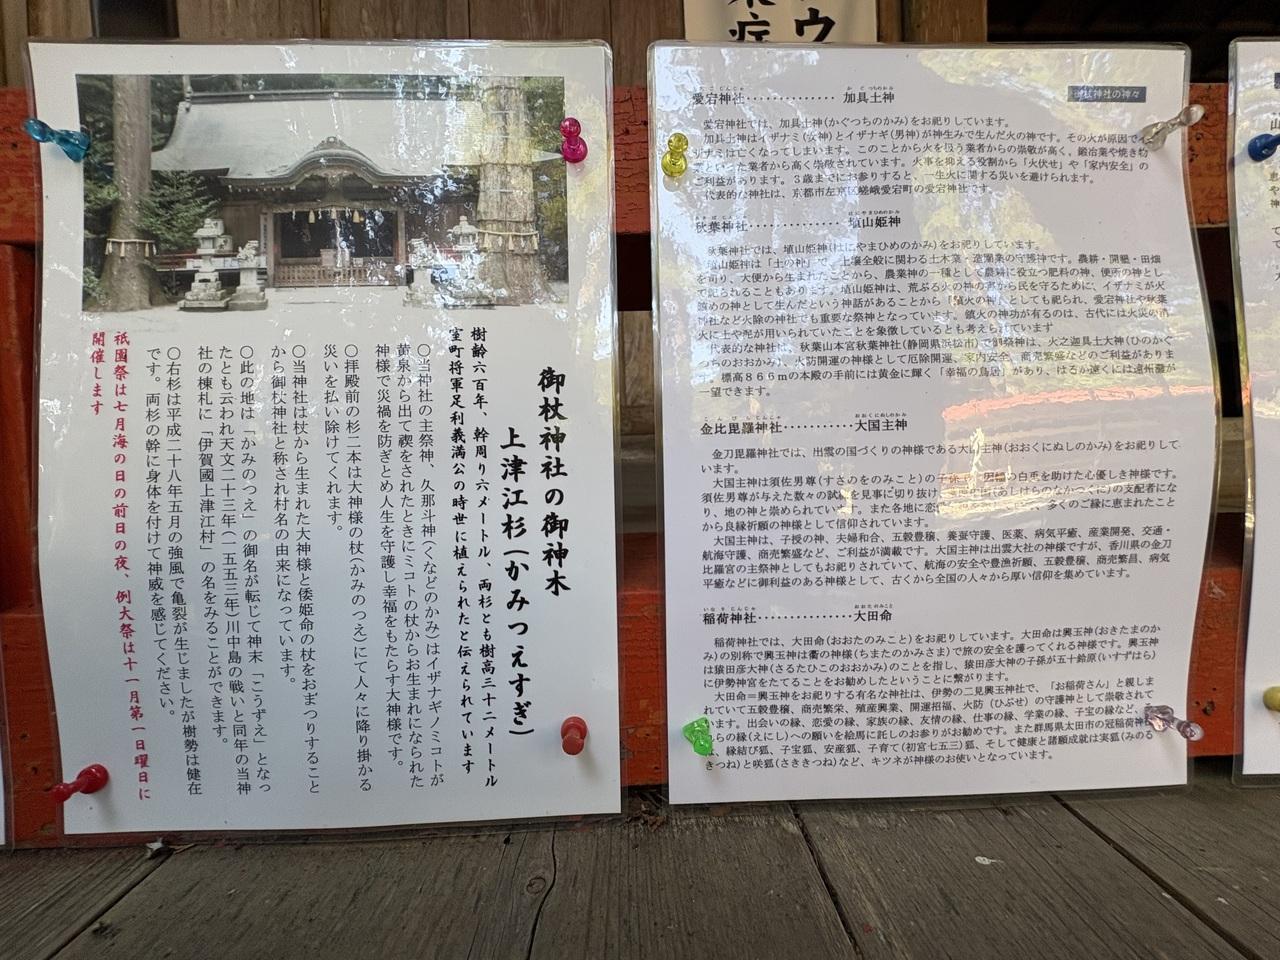 御杖神社の御神木
上津江杉(かみつえすぎ)
樹齢六百年、幹周り六メートル、両杉とも樹高三十二メートル
室町将軍足利義満公の時世に植えられたと伝えられています
○当神社の主祭神、久那斗神(くなどのかみ)はイザナギノミコトが
黄泉から出て禊をされたときにミコトの杖からお生まれになられた
神様で災禍を防ぎとめ人生を守護し幸福をもたらす大神様です。
○拝殿前の杉二本は大神様の杖(かみのつえ)にて人々に降り掛かる
災いを払い除けてくれます。
○当神社は杖から生まれた大神様と倭姫命の杖をおまつりすること
から御杖神社と称され村名の由来になっています。
○此の地は「かみのつえ」の御名が転じて神末「こうずえ」となっ
たとも云われ天文二十三年(一五五三年)川中島の戦いと同年の当神
社の棟札に「伊賀國上津江村」の名をみることができます。
○右杉は平成二十八年五月の強風で亀裂が生じましたが樹勢は健在
です。両杉の幹に身体を付けて神威を感じてください。
祇園祭は七月海の日の前日の夜、例大祭は十一月第一日曜日に
開催します
神社の神々
愛宕神社・・・・・・・・・・・・・・加具土神
愛宕神社では、加具土神(かぐつちのかみ)をお祀りしています。
加具土神はイザナミ(女神)とイザナギ(男神)が神生みで生んだ火の神です。その火が原因でイ
ザナミは亡くなってしまいます。このことから火を扱う業者からの崇敬が高く、鍛冶業や焼き物
といった業者から高く崇敬されています。火事を抑える役割から「火伏せ」や「家内安全」の
ご利益があります。3歳までにお参りすると、一生火に関する災いを避けられます。
代表的な神社は、京都市左京区嵯峨愛宕町の愛宕神社です。
秋葉神社・・・・・・・・・・・・・・埴山姫神
秋葉神社では、埴山姫神(はにやまひめのかみ)をお祀りしています。
埴山姫神は「土の神」で、土壌全般に関わる土木業・造園業の守護神です。農耕・開墾・田畑
を司り、大便から生まれたことから、農業神の一種として農耕に役立つ肥料の神、便所の神とし
て祀られることもあります。埴山姫神は、荒ぶる火の神の害から民を守るために、イザナミが火
鎮めの神として生んだという神話があることから「鎮火の神」としても祀られ、愛宕神社や秋葉
神社など火除の神社でも重要な祭神となっています。鎮火の神功が有るのは、古代には火災の消
火に土や泥が用いられていたことを象徴しているとも考えられています
代表的な神社は、秋葉山本宮秋葉神社(静岡県浜松市)で御祭神は、火之迦具土大神(ひのかぐ
つちのおおかみ)、火防開運の神様として厄除開運、家内安全、商売繁盛などのご利益がありま
す。標高866mの本殿の手前には黄金に輝く「幸福の鳥居」があり、はるか遠くには遠州灘が
一望できます。
金比毘羅神社・・・・・・・・・・・大国主神
金刀毘羅神社では、出雲の国づくりの神様である大国主神(おおくにぬしのかみ)をお祀りして
います。
大国主神は須佐男尊(すさのをのみこと)の子孫で、因幡の白兎を助けた心優しき神様です。
須佐男尊が与えた数々の試練を見事に切り抜け、(あしはらのなかつくに)の支配者にな
り、地の神と崇められています。また各地に多くのご縁に恵まれたこと
から良縁祈願の神様として信仰されています。
大国主神は、子授の神、夫婦和合、五穀豊穣、養蚕守護、医薬、病気平癒、産業開発、交通・
航海守護、商売繁盛など、ご利益が満載です。大国主神は出雲大社の神様ですが、香川県の金刀
比羅宮の主祭神としてもお祀りされていて、航海の安全や豊漁祈願、五穀豊穣、商売繁昌、病気
平癒などに御利益のある神様として、古くから全国の人々から厚い信仰を集めています。
稲荷神社・・・・・・・・・・・・・・大田命
稲荷神社では、大田命(おおたのみこと)をお祀りしています。大田命は興玉神(おきたまのか
み)の別称で興玉神は衢の神様(ちまたのかみさま)で旅の安全を護ってくれる神様です。興玉神
は猿田彦大神(さるたひこのおおかみ)のことを指し、猿田彦大神の子孫が五十鈴原(いすずはら)
に伊勢神宮をたてることをお勧めしたということに繋がります。
大田命=興玉神をお祀りする有名な神社は、伊勢の二見興玉神社で、「お稲荷さん」と親しま
れていて五穀豊穣、商売繁栄、殖産興業、開運招福、火防(ひぶせ)の守護神として崇敬されて
います。出会いの縁、恋愛の縁、家族の縁、友情の縁、仕事の縁、学業の縁、子宝の縁など、
らの縁(えにし)への願いを絵馬に託しのお参りがお勧めです。また群馬県太田市の冠稲荷神社
、縁結び狐、子宝狐、安産狐、子育て(初宮七五三)狐、そして健康と諸願成就は実狐(みのる
きつね)と咲狐(さききつね)など、キツネが神様のお使いとなっています。